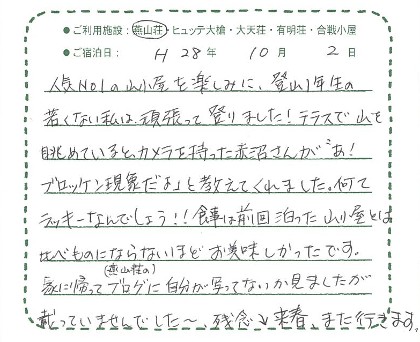 ●ご利用施設:燕山荘・ヒュッテ大槍・大天荘・有明荘・合戦小屋
●ご宿泊日: H 28年 10月 2日
人気No1の山小屋を楽しみに、登山1年生の
若くない私は、頑張って登りました!テラスで山を
眺めていると、カメラを持った赤沼さんが"あ!
ブロッケン現象だよ」と教えてくれました。何て
ラッキーなんでしょう!!食事は前回泊った山小屋とは
比べものにならないほどお美味しかったです。
(燕山荘の)
家に帰ってブログに自分が写ってないか見ましたが
載っていませんでした〜、残念↓来春、また行きます。